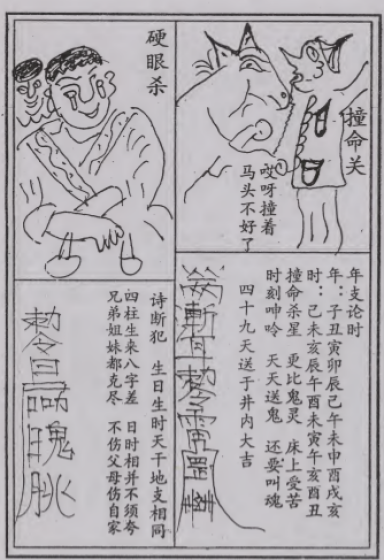 撞命关
哎呀撞着
马头不好了
年支论时
年：子丑寅卯辰己午未申酉戌亥
时：己未亥辰午酉未寅午亥酉丑
撞命杀星 更比鬼灵 床上受苦
时刻呻呤 天天送鬼 还要叫魂
四十九天送于井内大吉
硬眼杀
诗断犯 生日生时天干地支相同
四柱生来八字差 日时相并不须夸
兄弟姐妹都克尽 不伤父母伤自家